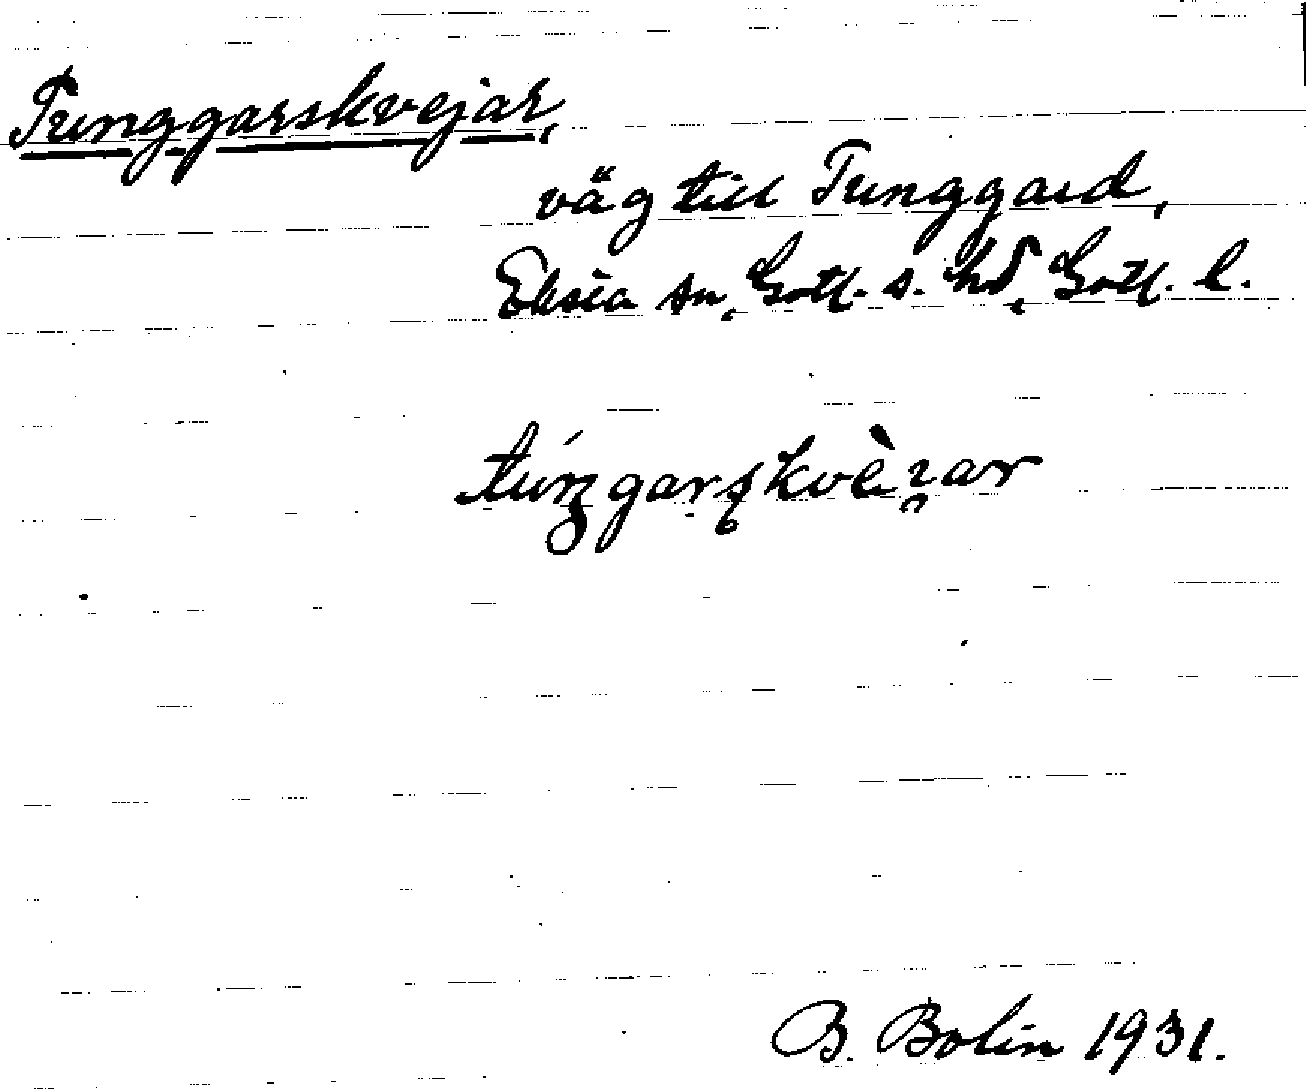 Tunggarskvejar,
väg till Tunggard,
Eksta sn, Gotl. s. hd, Gotl. l.
B. Bolin 1931.